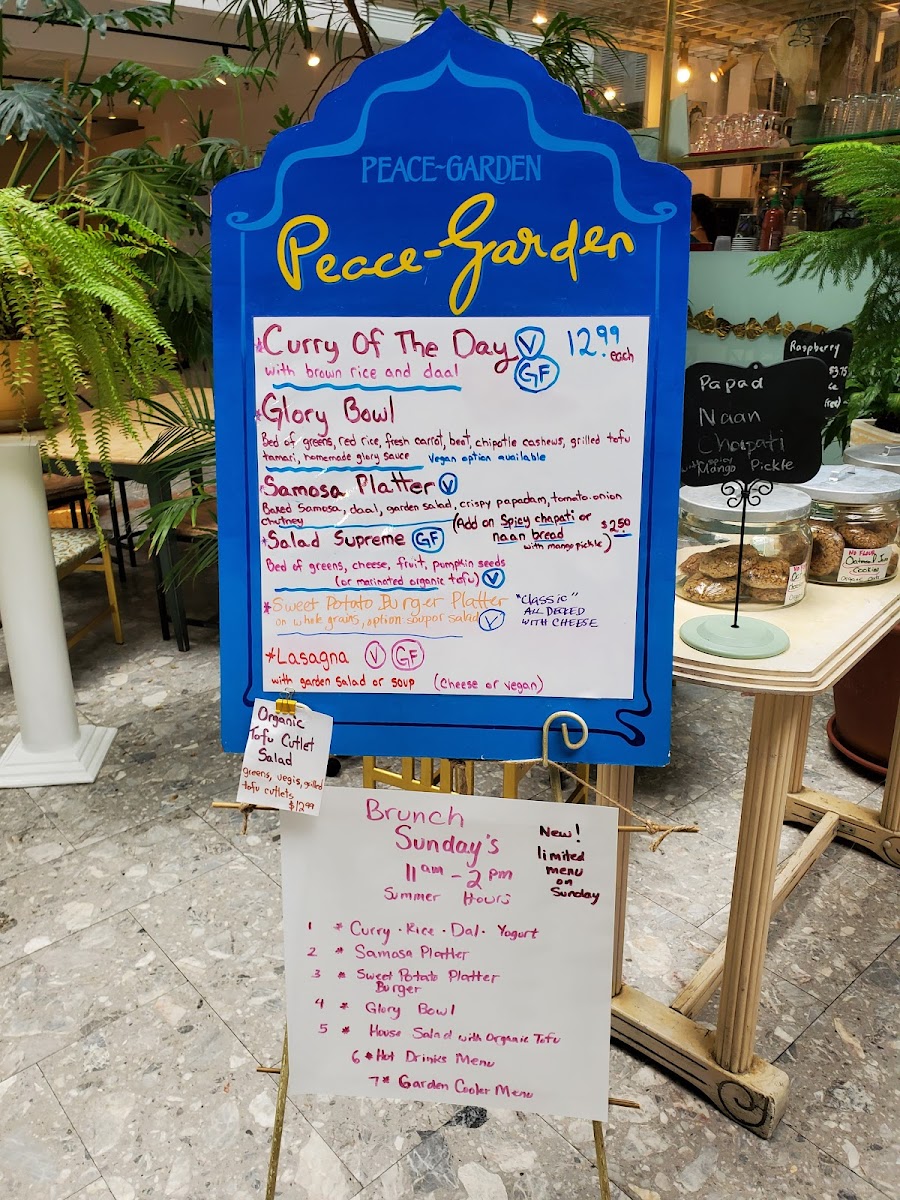 PEACE~GARDEN
Peace-Garden
*Curry Of The Day V 12.99 each
GF
with brown rice and daal
*Glory Bowl
Bed of greens, red rice, fresh carrot, beet, chipotle cashews, grilled tofu
tamari, homemade glory sauce Vegan option available
*Samosa Platter V
Baked Samosa, daal, garden salad, crispy papadam, tomato-onion
chutney (Add on Spicy chapati or $2.50
naan bread
with mango pickle)
*Salad Supreme GF
Bed of greens, cheese, fruit, pumpkin seeds
(or marinated organic tofu) V
*Sweet Potato Burger Platter "Classic"
on whole grains, option soup or salad V ALL DECKED
WITH CHEESE
*Lasagna V GF
with garden salad or soup (Cheese or vegan)
Organic
Tofu Cutlet
Salad
greens, vegis, grilled
tofu cutlets
$12.99
Brunch
Sunday's
11am - 2pm
Summer Hours
New!
limited
menu
on
Sunday
1 * Curry · Rice · Dal · Yogurt
2 * Samosa Platter
3 * Sweet Potato Platter
Burger
4 * Glory Bowl
5 * House Salad with Organic Tofu
6 * Hot Drinks Menu
7 * Garden Cooler Menu
Papad
Naan
Chapati
with spicy
Mango Pickle
Raspberry
$3.75
NO FLOUR
Cookies
Organic